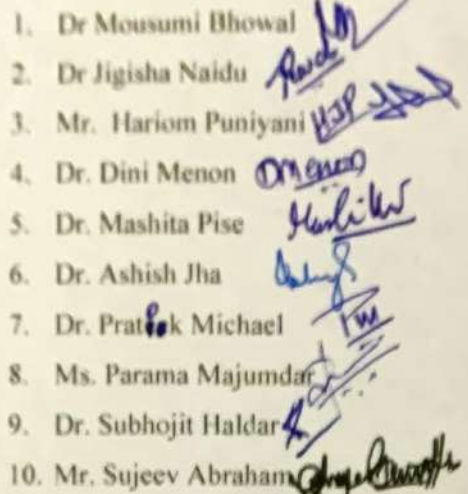 1. Dr Mousumi Bhowal
2. Dr Jigisha Naidu
3. Mr. Hariom Puniyani HJP
4. Dr. Dini Menon DMenon
5. Dr. Mashita Pise
6. Dr. Ashish Jha
7. Dr. Prateek Michael
8. Ms. Parama Majumdar
9. Dr. Subhojit Haldar
10. Mr. Sujeev Abraham